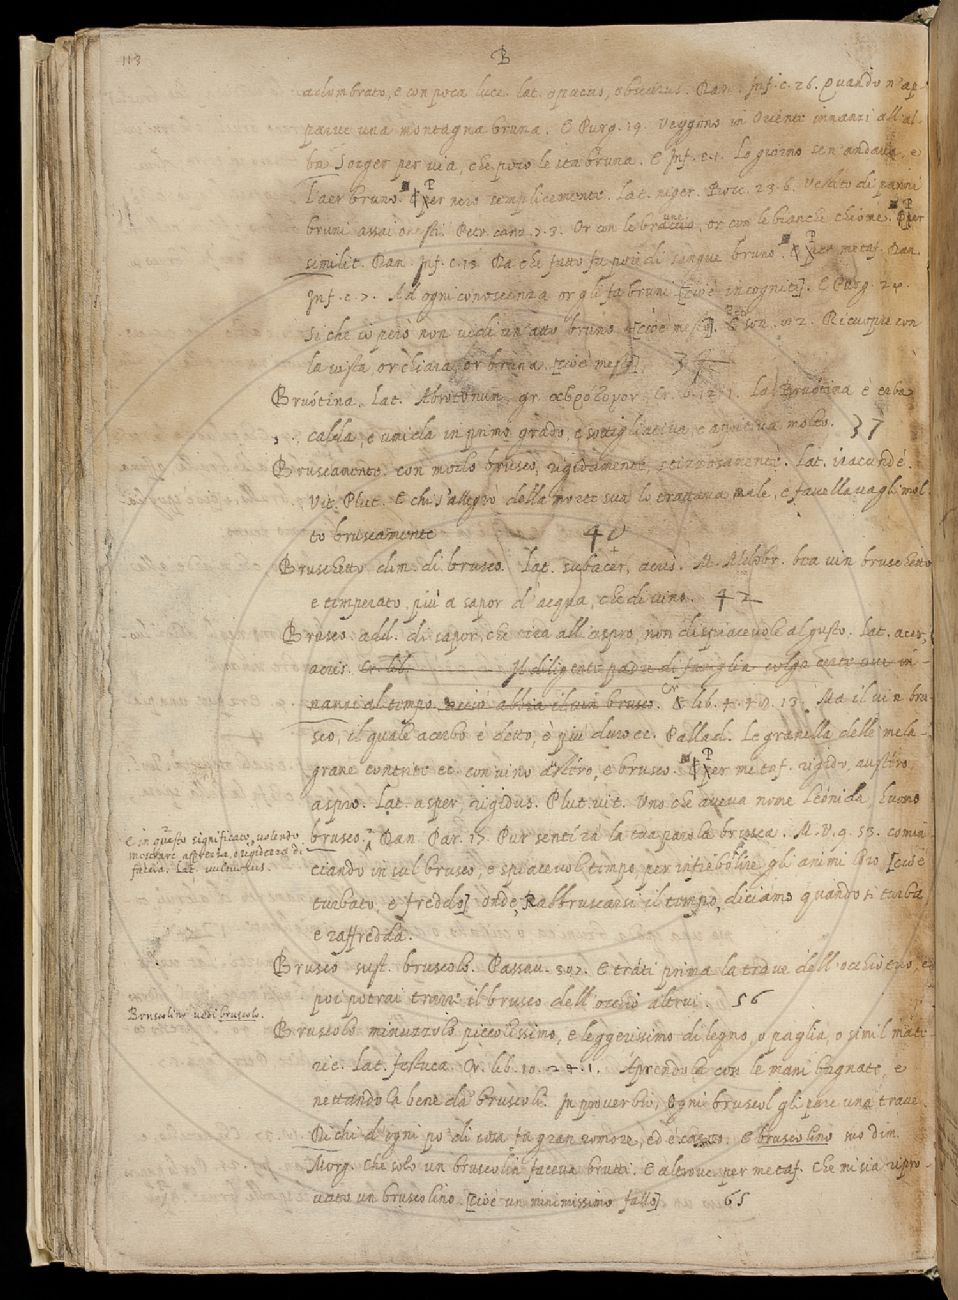 113
B
adombrato, e con poca luce. lat. opacus, obscurus. Dan. Inf. c. 26. Quando n'ap-
parve una montagna bruna. E Purg. 19. Veggono in Oriente innanzi all'al-
ba Sorger per via, che poco le sta bruna. E Inf. c. 2. Lo giorno sen'andava, e
l'aer bruno. Per nero semplicemente. Lat. niger. Bocc. 23. 6. Vestito di panni
bruni assai onesti. Petr. canz. 7. 3. Or con le braccia, or con le bianche chiome. Per
similit. Dan. Inf. c. 13. Da che fatto fu poi di sangue bruno. Per metaf. Dan.
Inf. c. 7. Ad ogni conoscenza or gli fa bruni [cioè incogniti]. E Purg. 24.
Si che però non vedi un atto bruno [cioè mesto]. E son. Ricuopre con
la vista, or chiara, or bruna. [cioè mesta].
Bruotina. Lat. Abrotonum, gr. Cr. La Bruotina è erba
calda, e umida in primo grado, e sottigliativa, e apritiva molto. 37
Bruscamente. con modo brusco, rigidamente, stizzosamente. Lat. iracundé.
Vit. Plut. E chi s'allegrò della morte sua lo trattava male, e favellavagli mol-
to bruscamente 40
Bruschetto dim. di brusco. Lat. subacer, acris. M. Aldobr. bea vin bruschetto
e temperato, più a sapor d'acqua, che di vino. 42
Brusco. add. di sapor, che tira all'aspro, non dispiacevole al gusto. Lat. acer,
acris. Cr. lib. Il diligente padre di famiglia colga certe uve in-
nanzi al tempo, acciò abbia il vin brusco. Cr. lib. 4. 40. 13. Ma il vin bru-
sco, il quale acerbo è detto, è più duro ec. Pallad. Le granella delle mela-
grane contrite ec. con vino aspro, e brusco. Per metaf. rigido, austero,
aspro. Lat. asper, rigidus. Plut. vit. Uno che aveva nome Leonida, huomo
brusco. Dan. Par. 17. Pur sentirà la tua parola brusca. M. V. 9. 53. comin-
ciando in sul brusco, e spiacevol tempo, per infiebolire gli animi loro [cioè
turbato, e freddo] onde, Rabbruscarsi il tempo, diciamo quando si turba,
e raffredda.
e in questo significato, volendo
mostrare asprezza, o rigidezza di
faccia. Lat. vultuosus.
Brusco sust. bruscolo. Passav. 307. E trati prima la trave dell'occhio tuo, e
poi potrai trarre il brusco dell'occhio altrui. 56
Bruscolino vedi bruscolo.
Bruscolo minuzzolo piccolissimo, e leggerissimo di legno, o paglia, o simil mate-
rie. Lat. festuca. Cr. lib. 10. 24. 1. Aprendola con le mani bagnate, e
nettandola bene da' bruscoli. In proverbio, Ogni bruscol gli pare una trave.
Di chi d'ogni po' di cosa fa gran romore, ed è E bruscolino suo dim.
Morg. Che solo un bruscolin faceva brutti. E altrove per metaf. Che mi sia ripro-
vato un bruscolino. [cioè un minimissimo fallo] 65